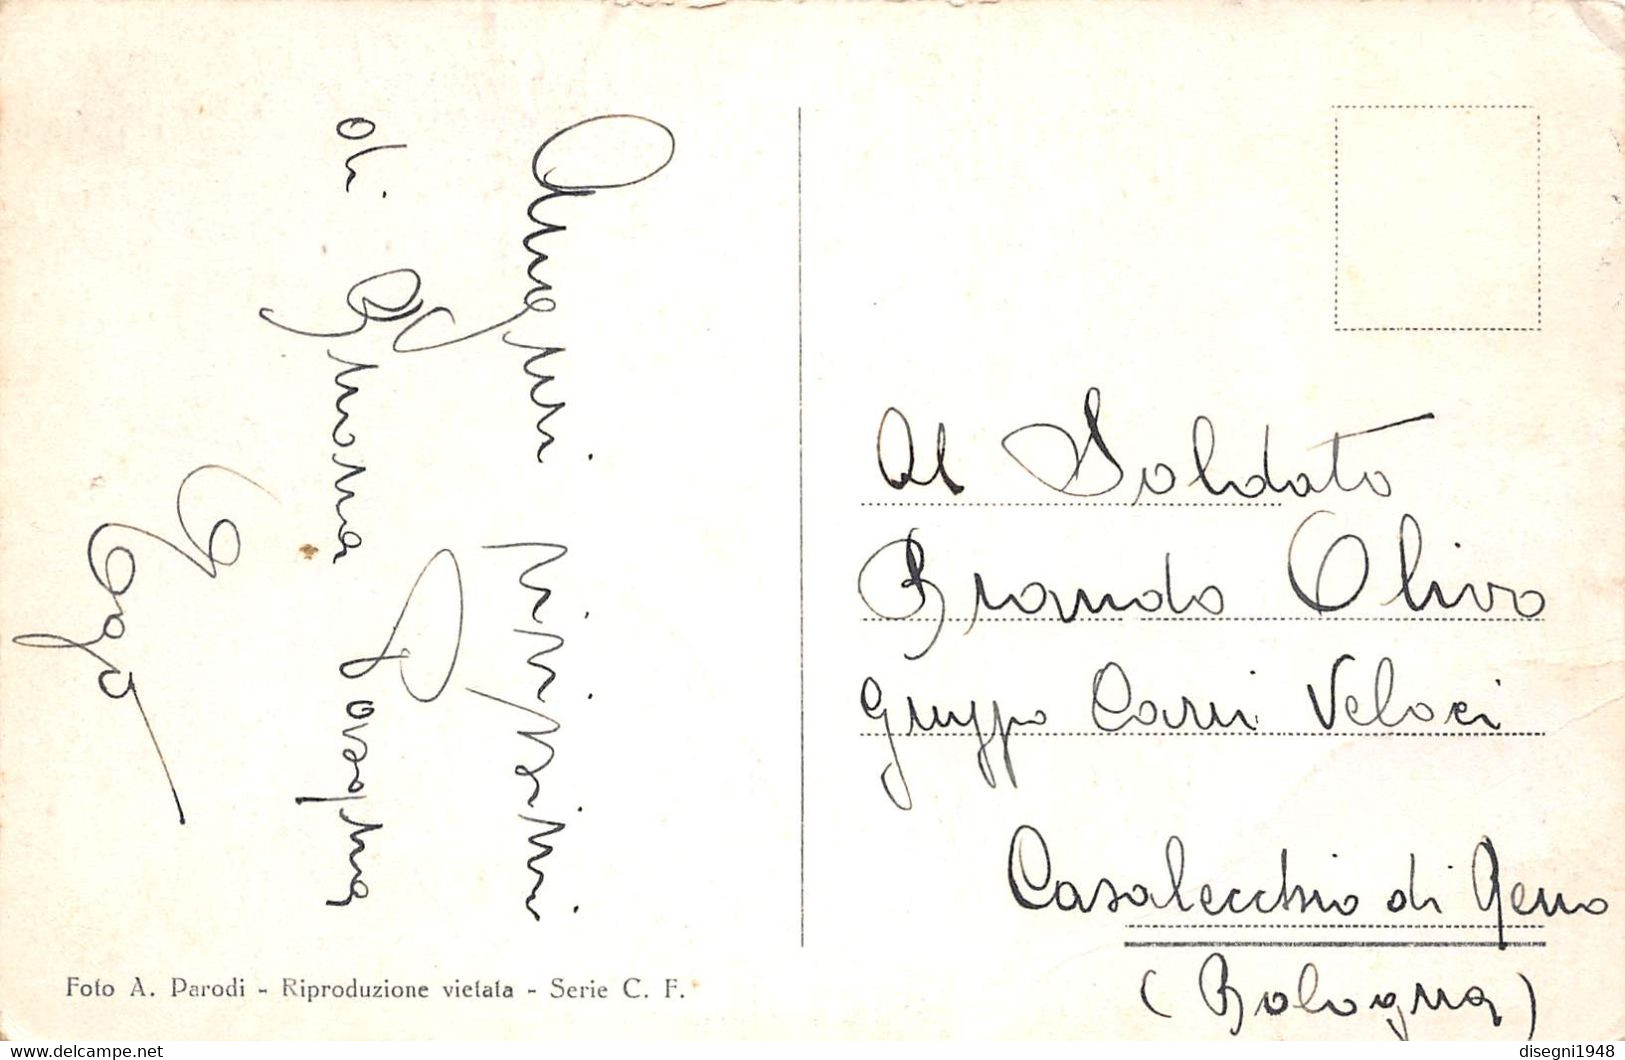 Auguri vivissimi
di Buona Pasqua
Al Soldato
Brando Olivo
Gruppo Carri Veloci
Casalecchio di Reno
(Bologna)
Foto A. Parodi - Riproduzione vietata - Serie C. F.
delcampe.net
disegni1948